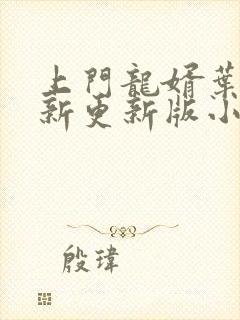 上門龍婿葉
新更新版小
殷瑋